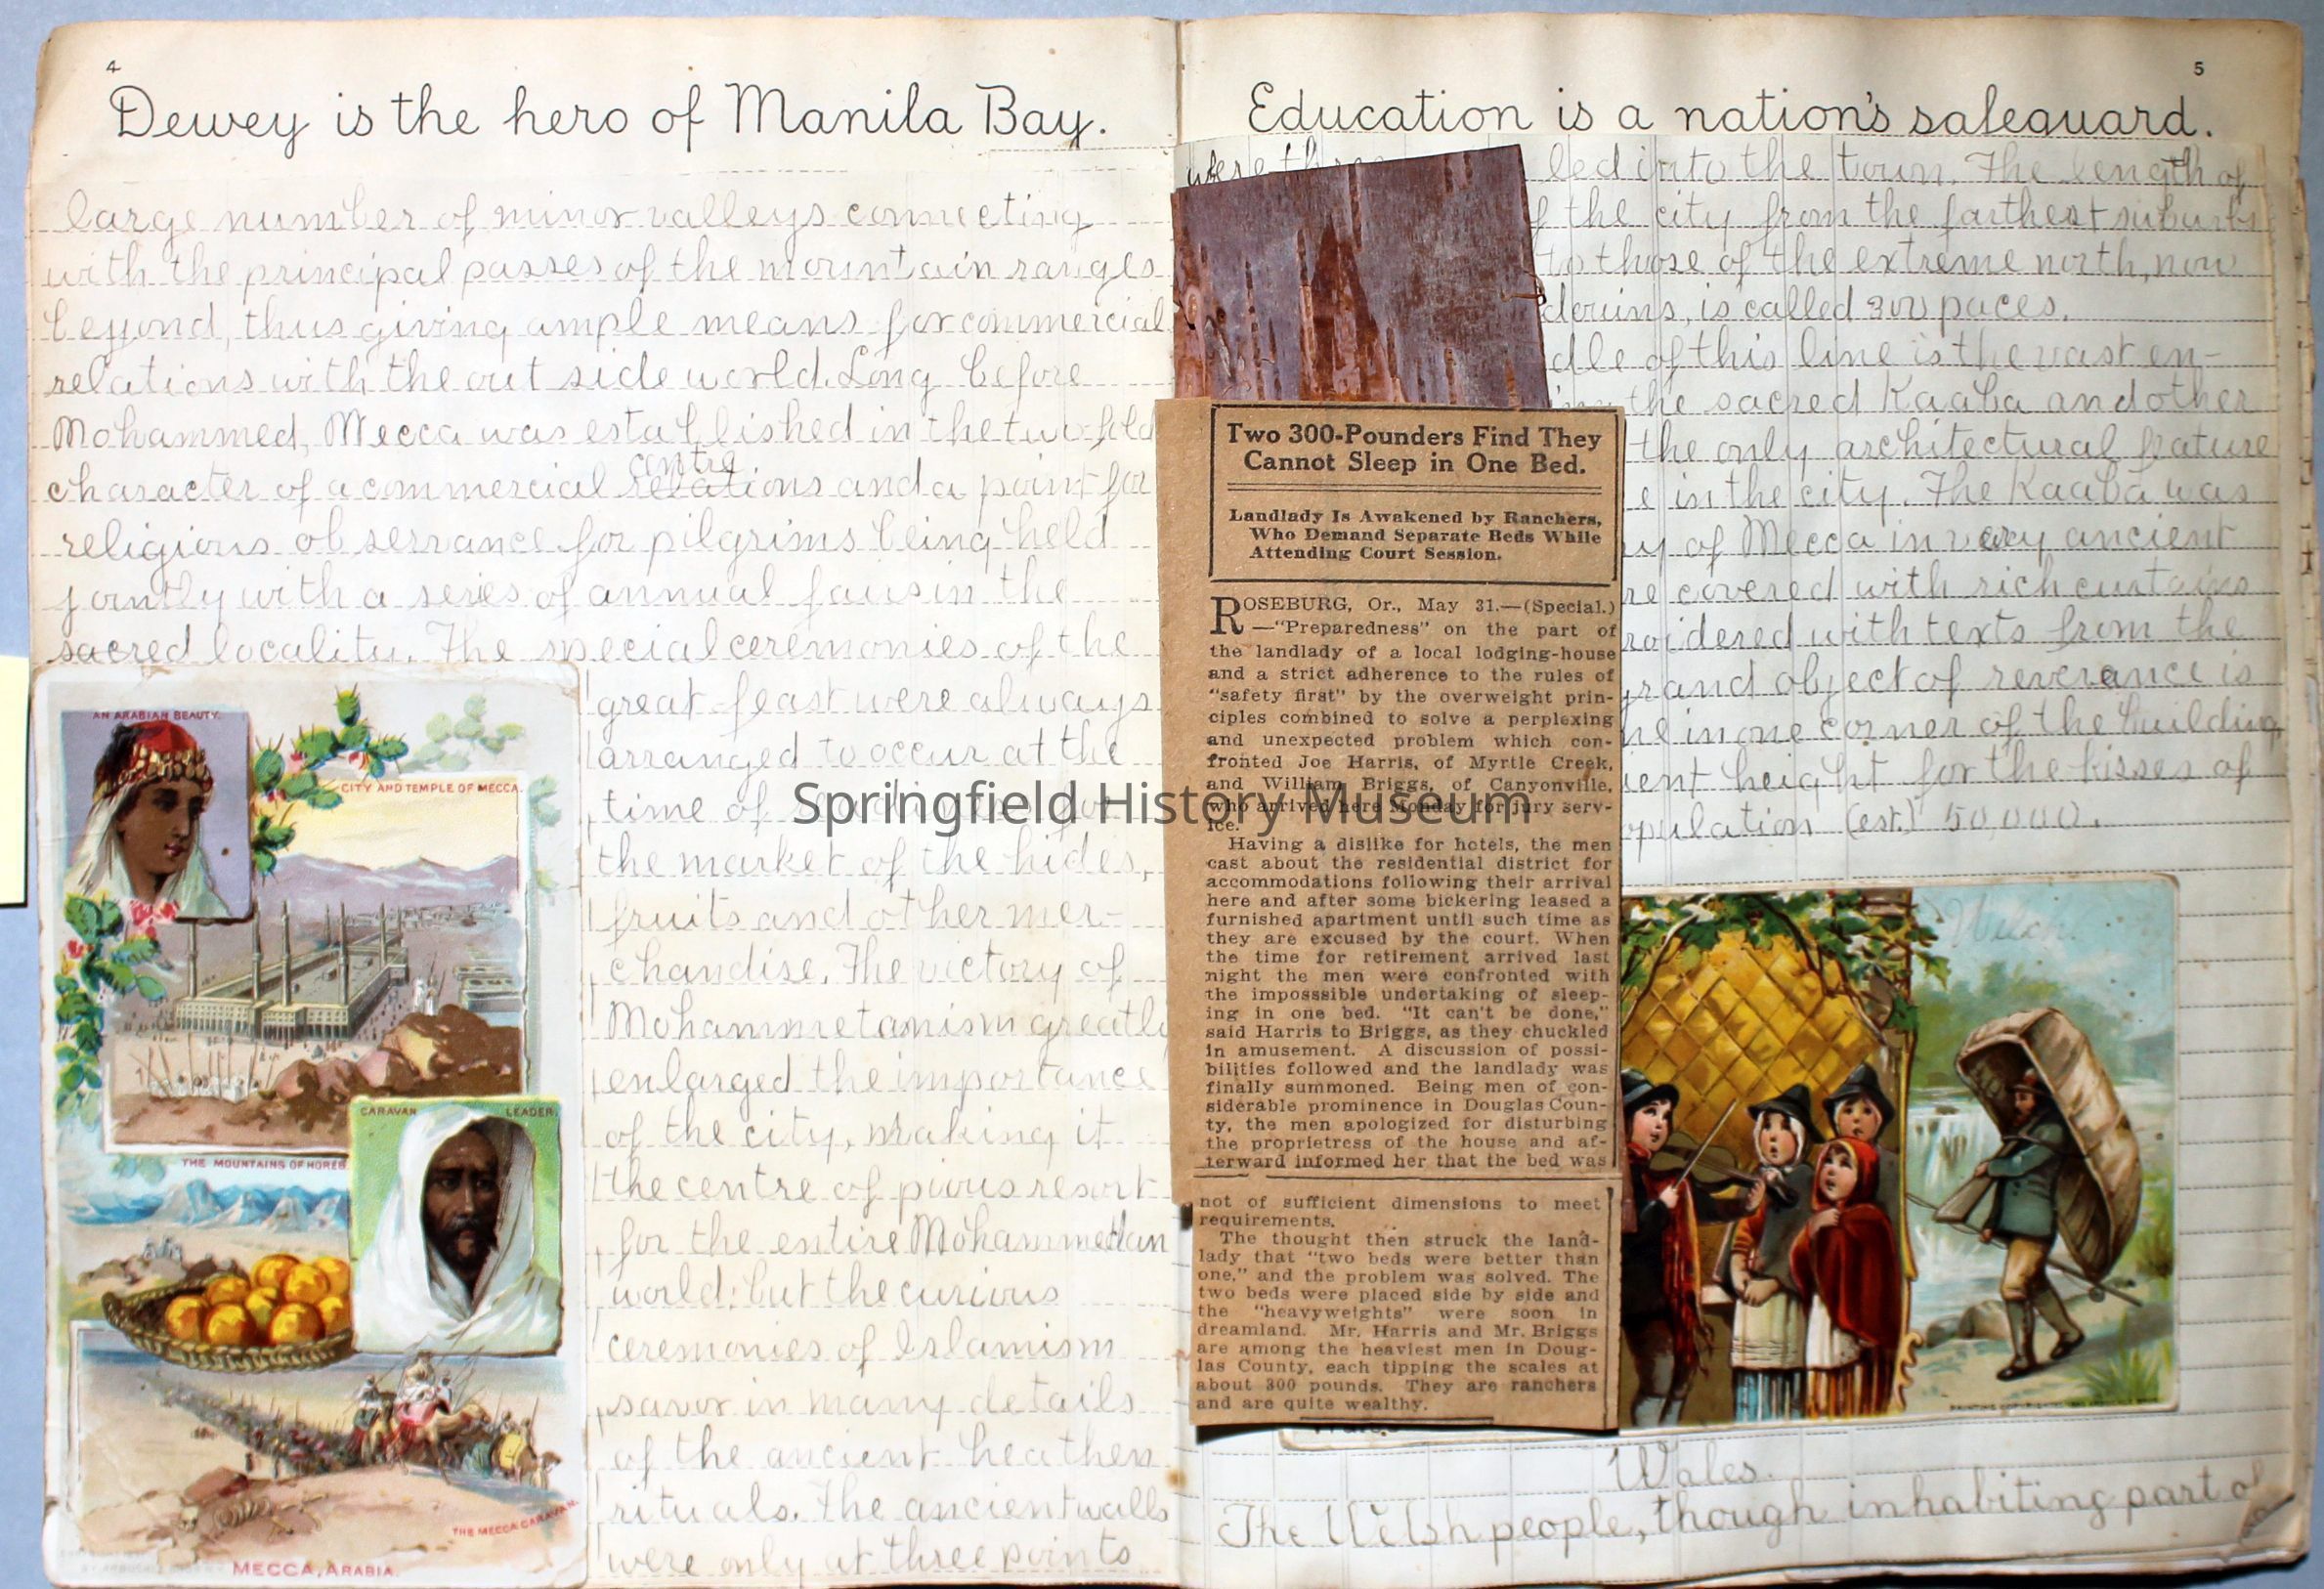 4
Dewey is the hero of Manila Bay.
large number of minor valleys connecting
with the principal passes of the mountain ranges
beyond, thus giving ample means for commercial
relations with the out side world. Long before
Mohammed, Mecca was established in the two fold
centre
character of a commercial relations and a point for
religious observance for pilgrims being held
jointly with a series of annual fairs in the
sacred locality. The special ceremonies of the
great feast were always
arranged to occur at the
time of
the market of the hides,
fruits and other mer-
chandise. The victory of
Mohammetanism greatly
enlarged the importance
of the city, making it
the centre of pious resort
for the entire Mohammedan
world; but the curious
ceremonies of Islamism
savor in many details
of the ancient heathen
rituals. The ancient walls
were only at three points
AN ARABIAN BEAUTY.
CITY AND TEMPLE OF MECCA.
THE MOUNTAINS OF HOREB
CARAVAN LEADER.
THE MECCA CARAVAN.
MECCA, ARABIA
Springfield History Museum
5
Education is a nation's safeguard.
were led into the town. The length of
the city from the farthest suburbs
to those of the extreme north, now
is called 300 paces.
of this line is the vast en-
the sacred Kaaba and other
the only architectural feature
in the city. The Kaaba was
of Mecca in very ancient
covered with rich curtains
with texts from the
grand object of reverance is
in one corner of the building
height for the kisses of
(est.) 50,000.
Two 300-Pounders Find They
Cannot Sleep in One Bed.
Landlady Is Awakened by Ranchers,
Who Demand Separate Beds While
Attending Court Session.
ROSEBURG, Or., May 31.—(Special.)
—"Preparedness" on the part of
the landlady of a local lodging-house
and a strict adherence to the rules of
"safety first" by the overweight prin-
ciples combined to solve a perplexing
and unexpected problem which con-
fronted Joe Harris, of Myrtle Creek,
and William Briggs, of Canyonville,
who arrived here Monday for jury serv-
ice.
Having a dislike for hotels, the men
cast about the residential district for
accommodations following their arrival
here and after some bickering leased a
furnished apartment until such time as
they are excused by the court. When
the time for retirement arrived last
night the men were confronted with
the imposssible undertaking of sleep-
ing in one bed. "It can't be done,"
said Harris to Briggs, as they chuckled
in amusement. A discussion of possi-
bilities followed and the landlady was
finally summoned. Being men of con-
siderable prominence in Douglas Coun-
ty, the men apologized for disturbing
the proprietress of the house and af-
terward informed her that the bed was
not of sufficient dimensions to meet
requirements.
The thought then struck the land-
lady that "two beds were better than
one," and the problem was solved. The
two beds were placed side by side and
the "heavyweights" were soon in
dreamland. Mr. Harris and Mr. Briggs
are among the heaviest men in Doug-
las County, each tipping the scales at
about 300 pounds. They are ranchers
and are quite wealthy.
Welsh.
Wales.
The Welsh people, though inhabiting part of